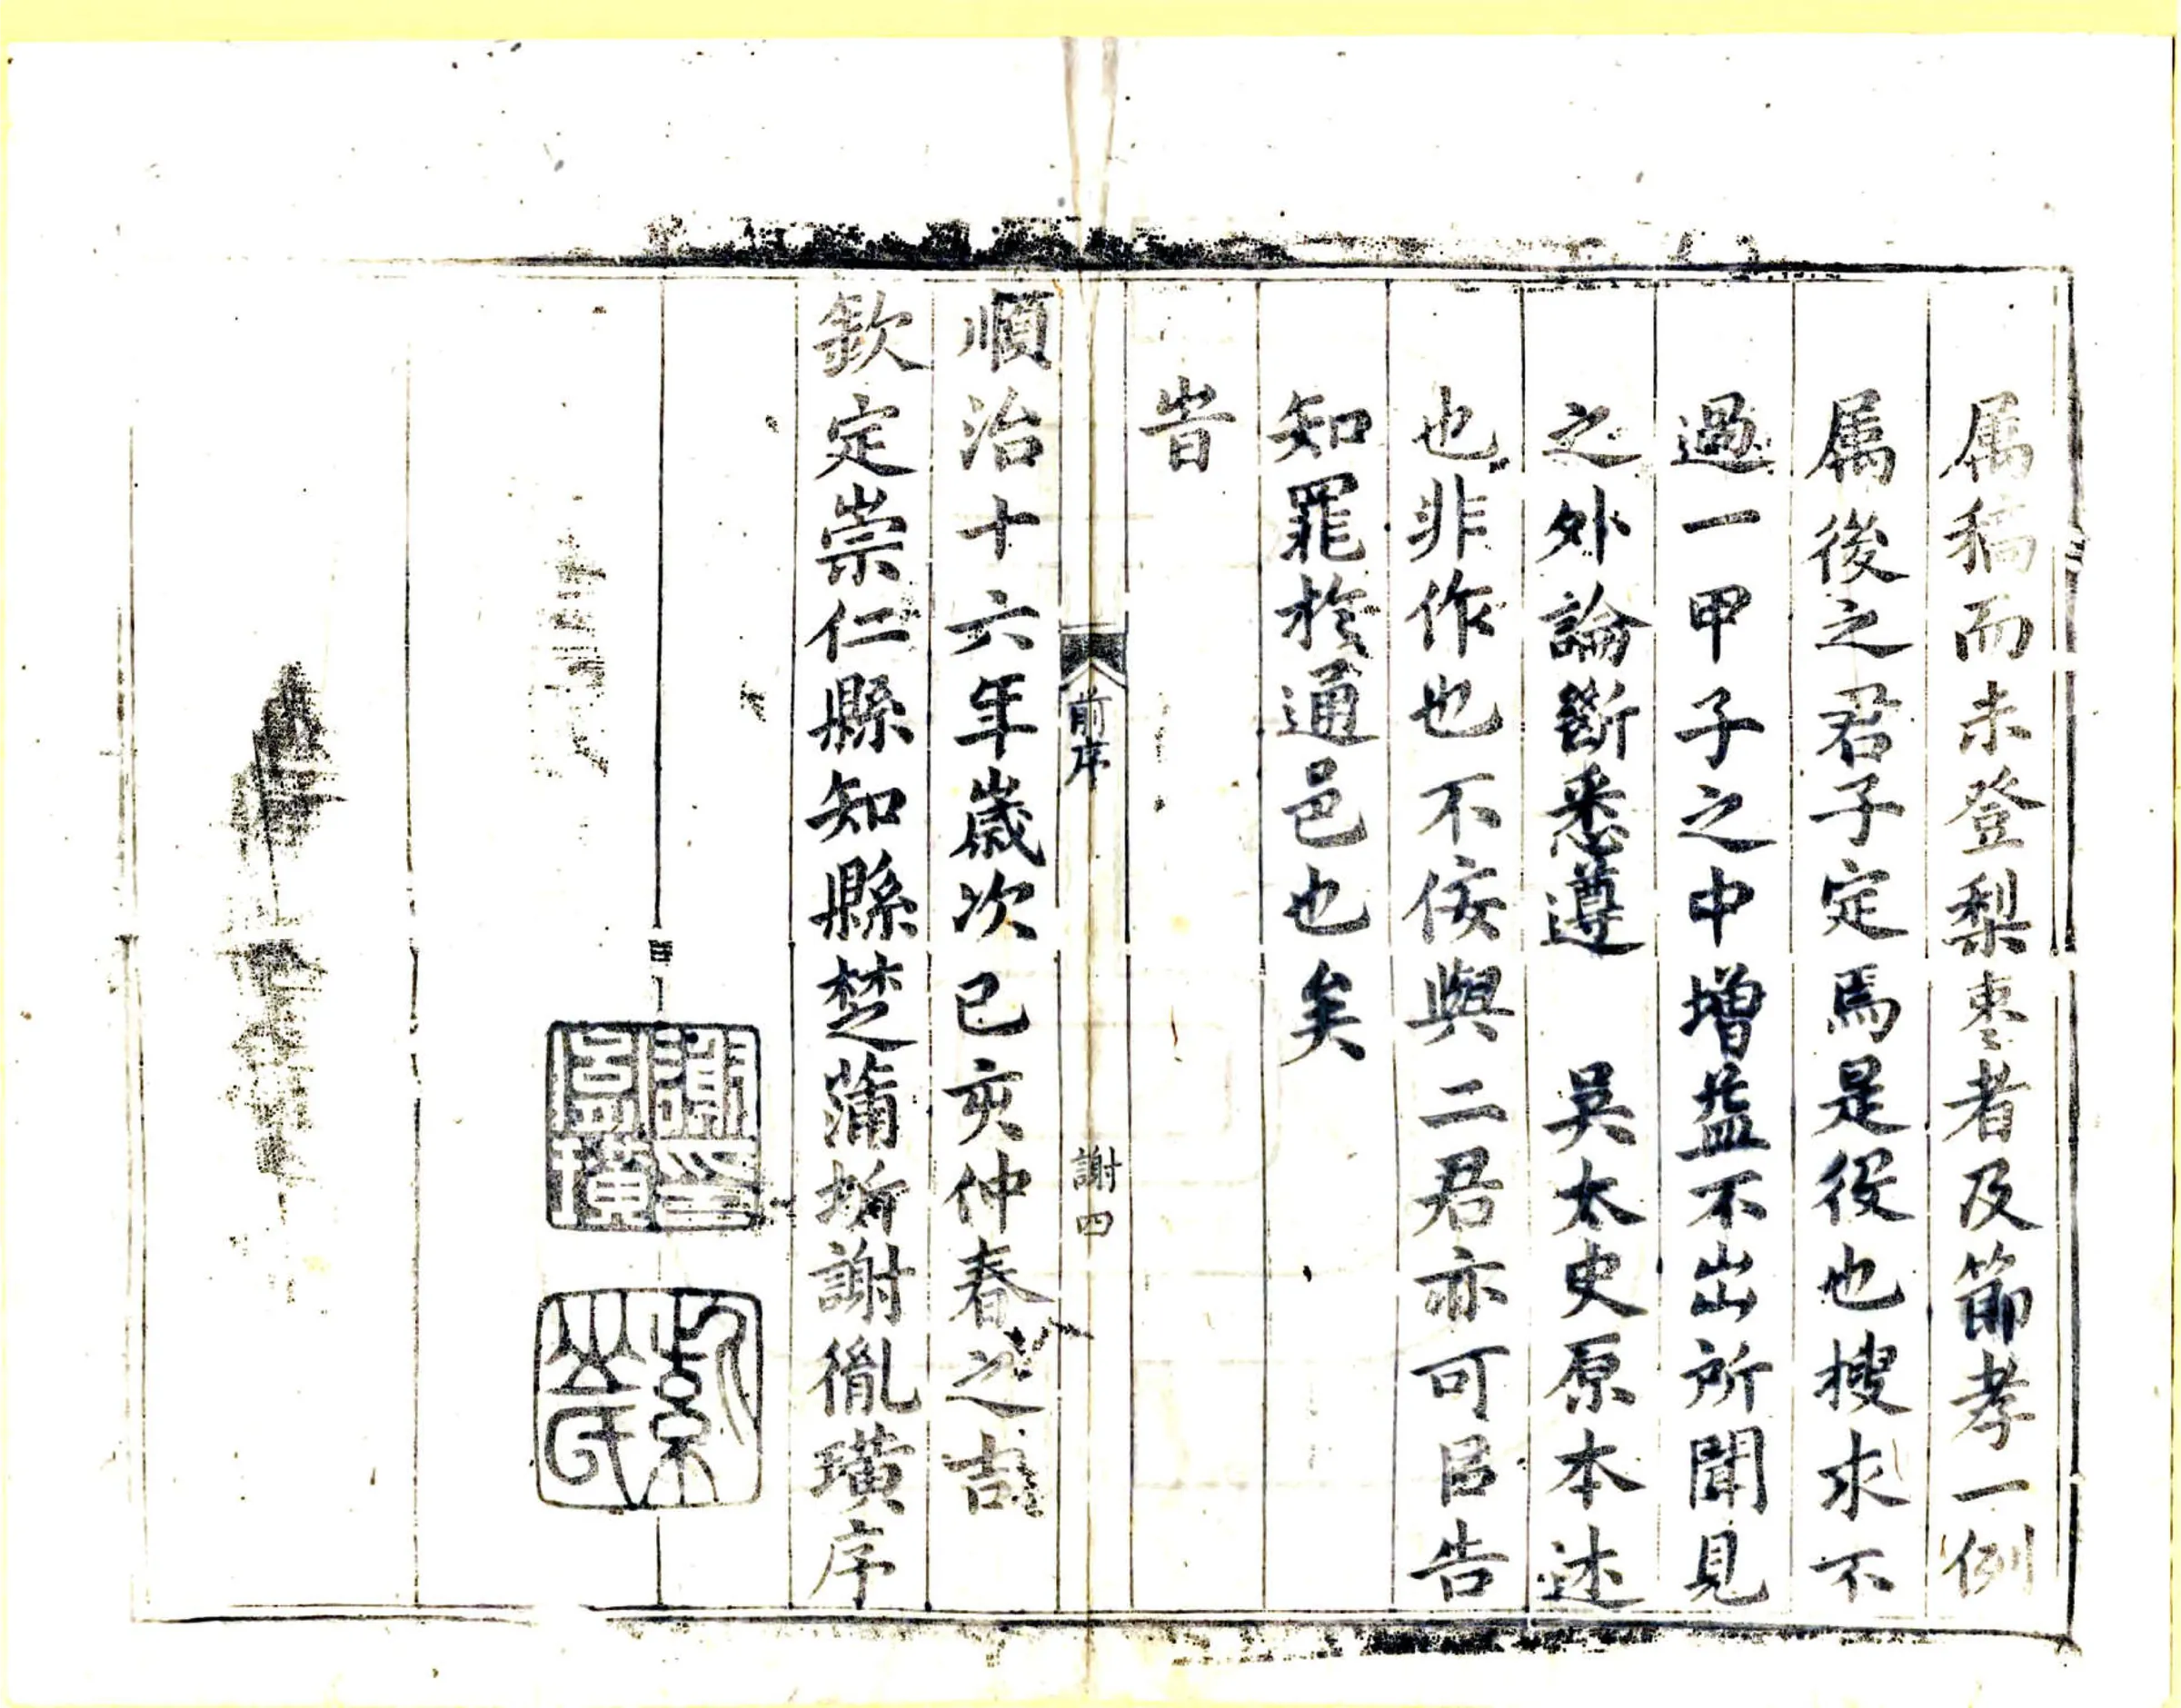 属稿而未登梨枣者及節孝一例
属後之君子定焉是役也搜求不
過一甲子之中增益不出所聞見
之外論斷悉遵　吳太史原本述
也非作也不佞與二君亦可㠯告
知罪於通邑也矣
旹
前序
謝四
順治十六年歲次己亥仲春之吉
欽定崇仁縣知縣楚蒲圻謝胤璜序
謝印胤璜
氏